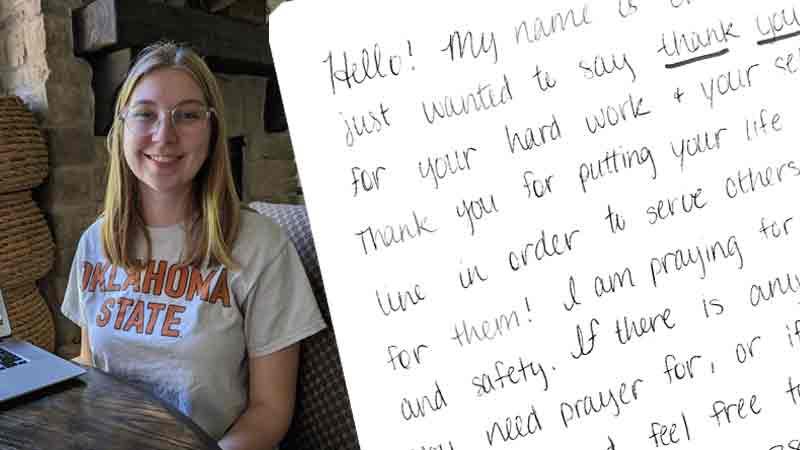 OKLAHOMA
STATE
Hello! My name is
just wanted to say thank you
for your hard work + your
Thank you for putting your life
line in order to serve others
for them! I am praying for
and safety. If there is any
you need prayer for, or if
feel free